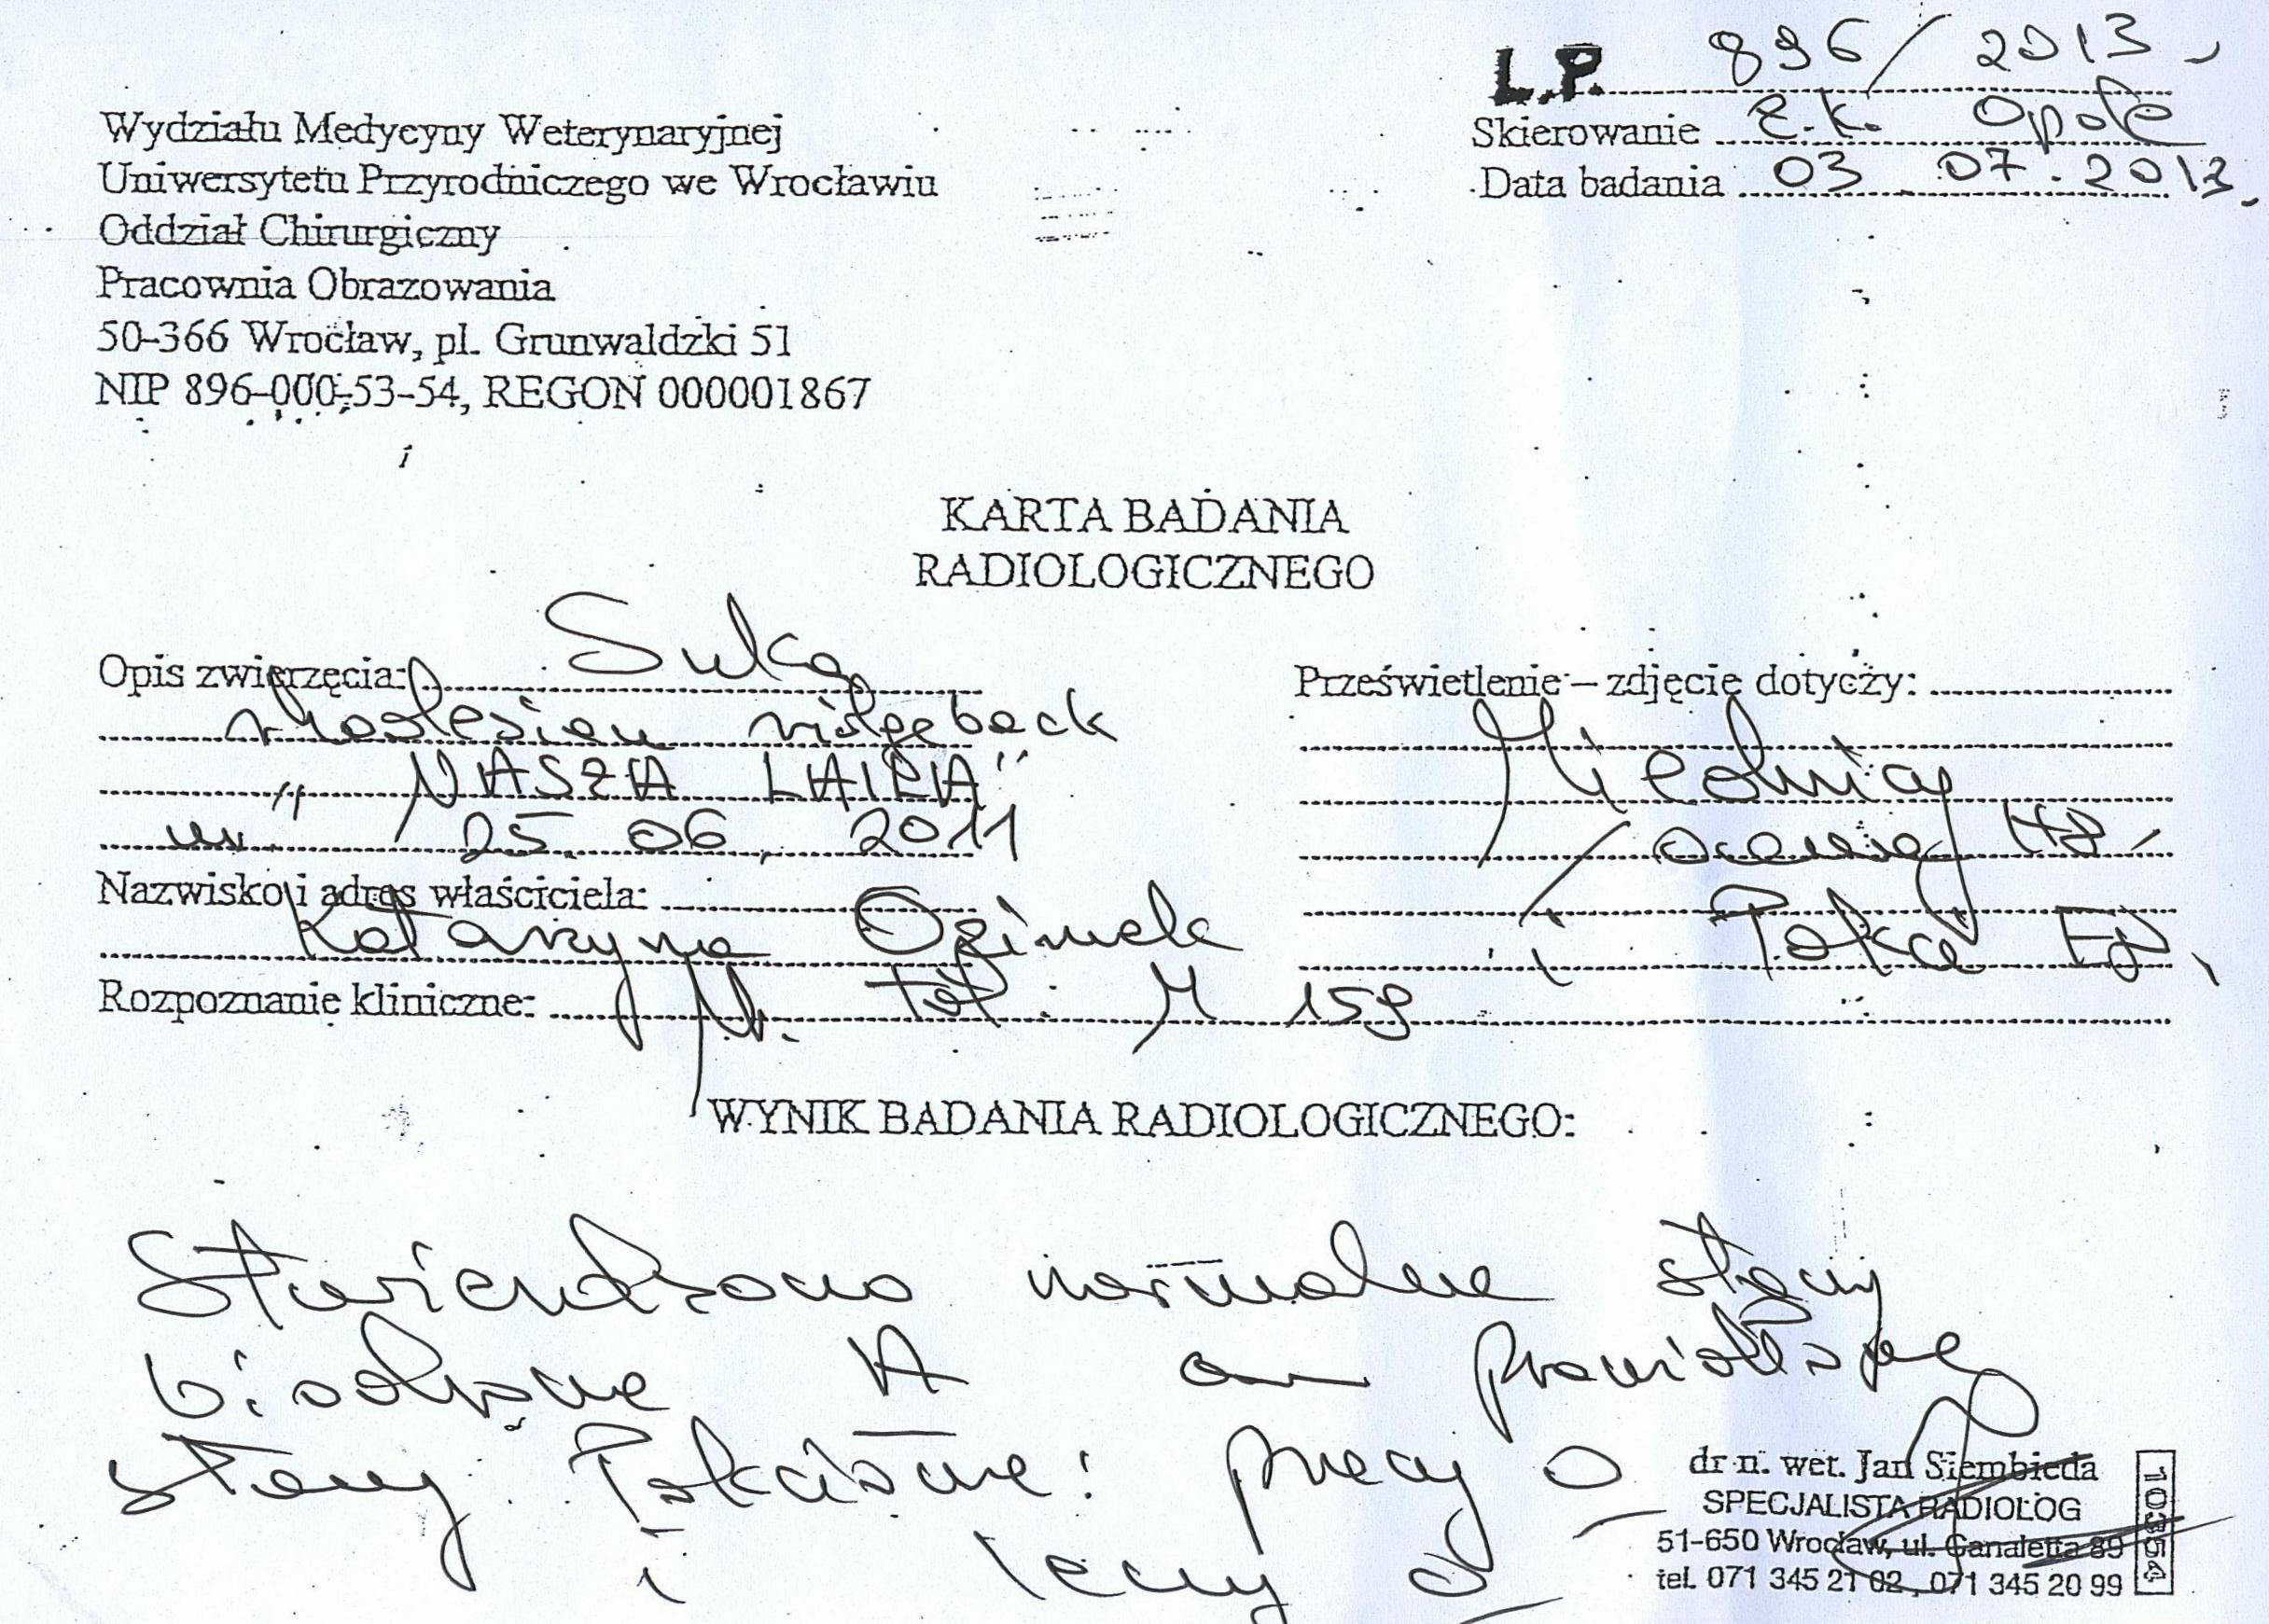 L.P. 896/2013
Skierowanie Z.K. Opole
Data badania 03.07.2013.
Wydziału Medycyny Weterynaryjnej
Uniwersytetu Przyrodniczego we Wrocławiu
Oddział Chirurgiczny
Pracownia Obrazowania
50-366 Wrocław, pl. Grunwaldzki 51
NIP 896-000-53-54, REGON 000001867
KARTA BADANIA
RADIOLOGICZNEGO
Opis zwierzęcia: Suka
rhodesian ridgeback
"NASZA LAIRA"
ur. 25.06.2011
Nazwisko i adres właściciela:
Katarzyna
Rozpoznanie kliniczne: N. tat: M 159
Prześwietlenie – zdjęcie dotyczy:
Miednicy
/ocena HD/
i łokcie ED
WYNIK BADANIA RADIOLOGICZNEGO:
Stwierdzono normalne stawy
biodrowe A
stawy łokciowe: prawy 0
i lewy 0
dr n. wet. Jan Siembieda
SPECJALISTA RADIOLOG
51-650 Wrocław, ul. Canaletta 89
tel. 071 345 21 02, 071 345 20 99
10354